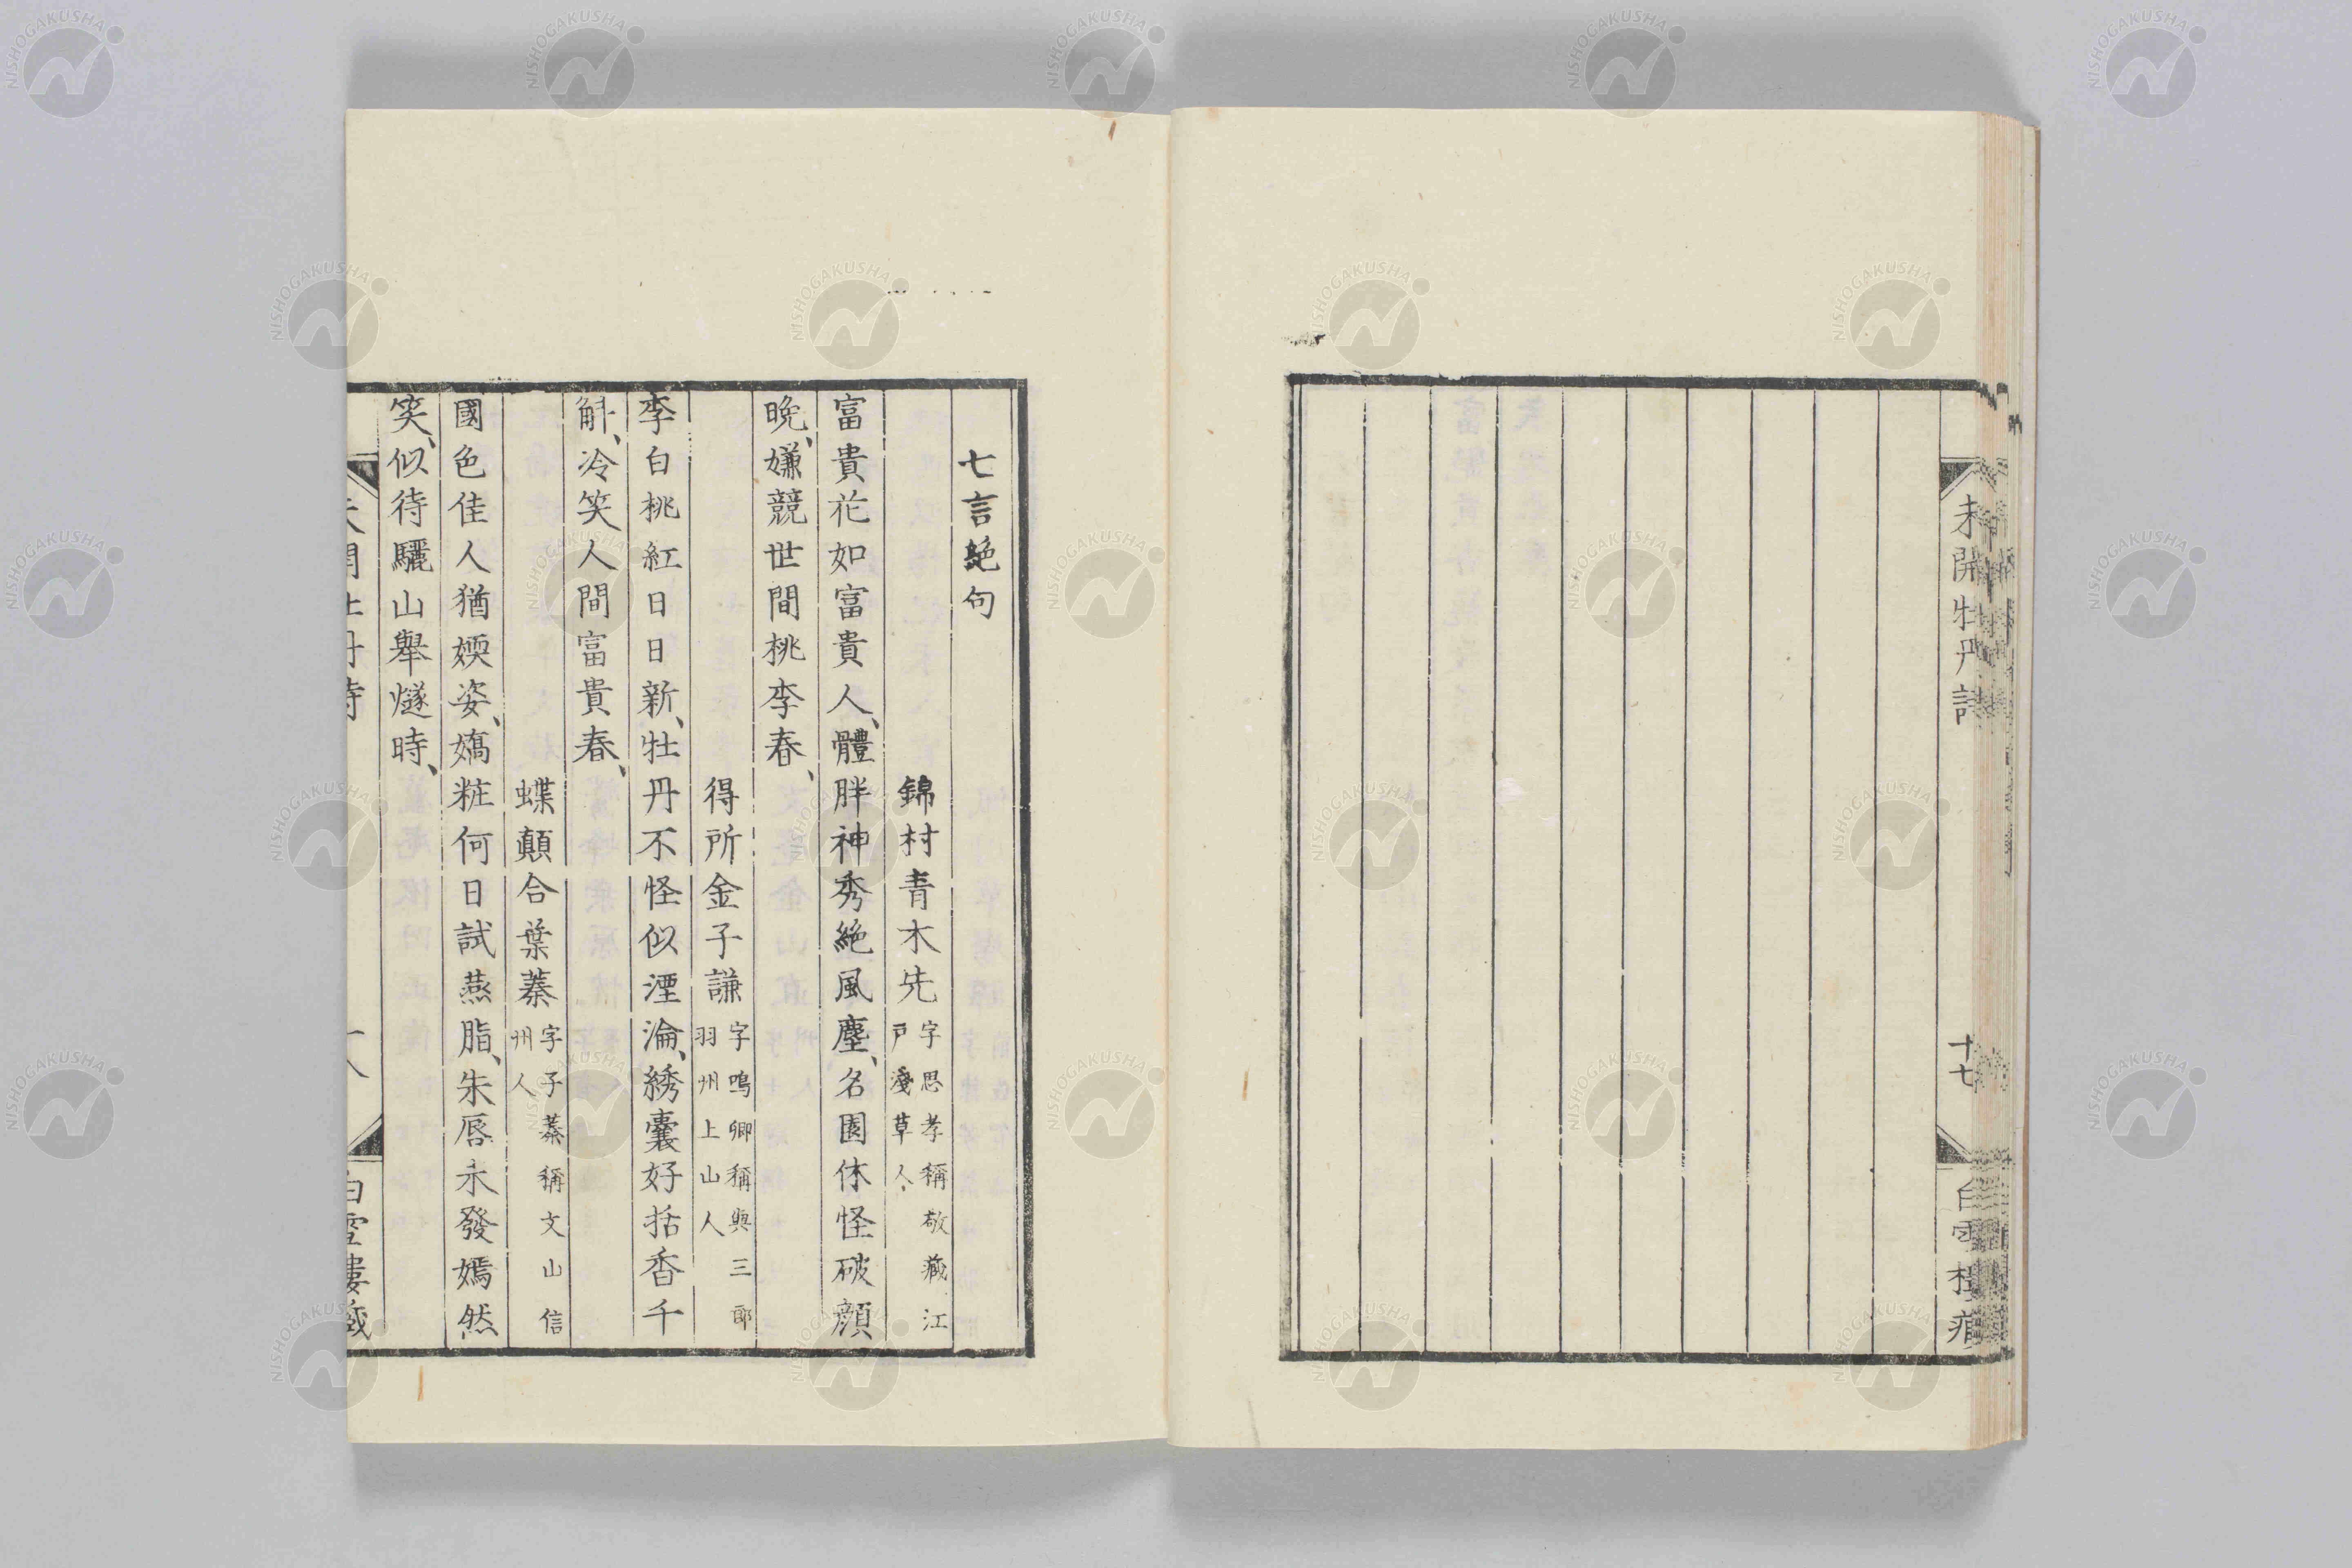 未開牡丹詩
十七
七言絶句
錦村青木先 字思孝稱敬藏江戸淺草人
富貴花如富貴人、體胖神秀絶風塵、名園休怪破顔
晩、嫌競世間桃李春、
得所金子謙 字鳴卿稱與三郎羽州上山人
李白桃紅日日新、牡丹不怪似湮淪、綉囊好括香千
斛、冷笑人間富貴春、
蝶顛合葉蓁 字子蓁稱文山信州人
國色佳人猶媆姿、嬌粧何日試燕脂、朱唇未發嫣然
笑、似待驪山舉燧時、
NISHOGAKUSHA